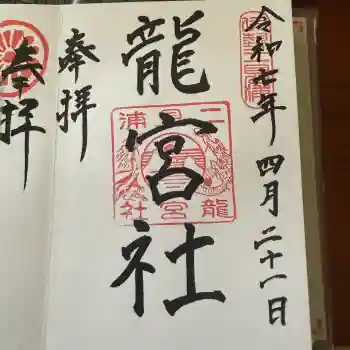 令和七年 四月二十一日
龍宮社
二見浦
龍宮社
奉拝
奉拝